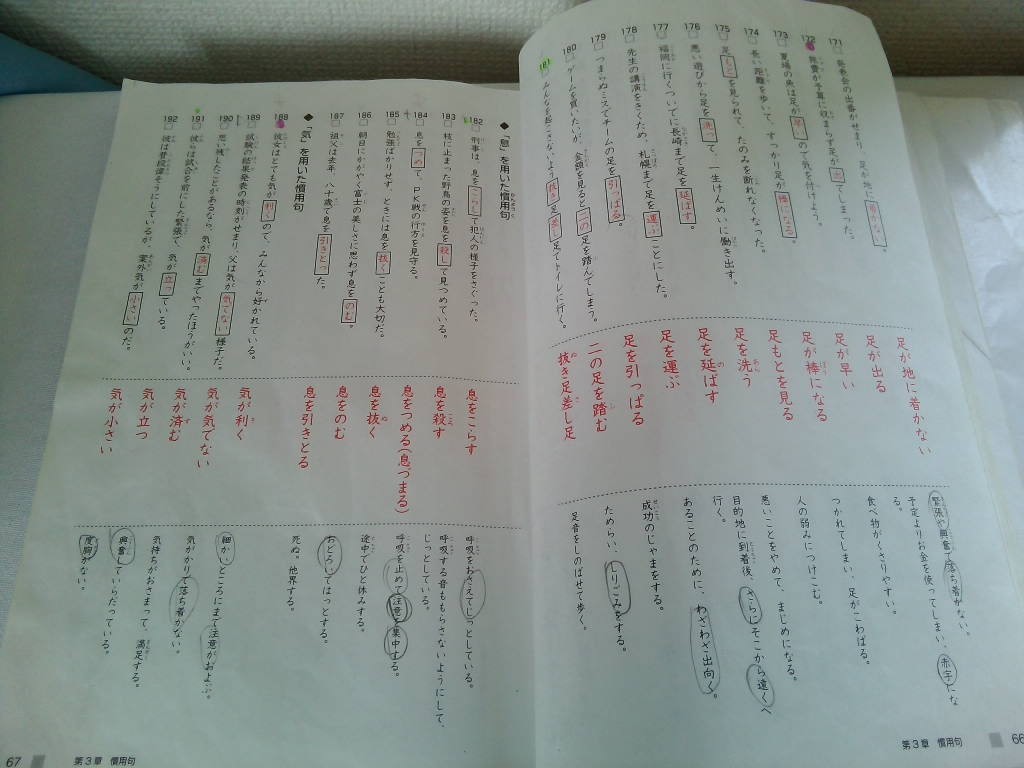 171 発表会の出番がせまり、足が地に着かない。
172 旅費が予算に収まらず足が出てしまった。
173 夏場の魚は足が早いので気を付けよう。
174 長い距離を歩いて、すっかり足が棒になる。
175 足もとを見られて、たのみを断れなくなった。
176 悪い遊びから足を洗って、一生けんめいに働き出す。
177 福岡に行くついでに長崎まで足を延ばす。
178 先生の講演をきくため、札幌まで足を運ぶことにした。
179 つまらぬミスでチームの足を引っぱる。
180 ゲームを買いたいが、金額を見ると二の足を踏んでしまう。
181 みんなを起こさないよう抜き足差し足でトイレに行く。
足が地に着かない
足が出る
足が早い
足が棒になる
足もとを見る
足を洗う
足を延ばす
足を運ぶ
足を引っぱる
二の足を踏む
抜き足差し足
緊張や興奮で落ち着かない。
予定よりお金を使ってしまい、赤字にな
る。
食べ物がくさりやすい。
つかれてしまい、足がこわばる。
人の弱みにつけこむ。
悪いことをやめて、まじめになる。
目的地に到着後、さらにそこから遠くへ
行く。
あることのために、わざわざ出向く。
成功のじゃまをする。
ためらい、しりごみをする。
足音をしのばせて歩く。
第3章 慣用句
66
◆「息」を用いた慣用句
182 刑事は、息をこらして犯人の様子をさぐった。
183 枝に止まった野鳥の姿を息を殺して見つめている。
184 息をつめて、PK戦の行方を見守る。
185 勉強ばかりせず、ときには息を抜くことも大切だ。
186 朝日にかがやく富士の美しさに思わず息をのむ。
187 祖父は去年、八十歳で息を引きとった。
◆「気」を用いた慣用句
188 彼女はとても気が利くので、みんなから好かれている。
189 試験の結果発表の時刻がせまり、父は気が気でない様子だ。
190 思い残したことがあるなら、気が済むまでやったほうがいい。
191 彼らは試合を前にした緊張で、気が立っている。
192 彼は普段偉そうにしているが、案外気が小さいのだ。
息をこらす
息を殺す
息をつめる(息づまる)
息を抜く
息をのむ
息を引きとる
気が利く
気が気でない
気が済む
気が立つ
気が小さい
呼吸をおさえてじっとしている。
呼吸する音ももらさないようにして、
じっとしている。
呼吸を止めて注意を集中する。
途中でひと休みする。
おどろいてはっとする。
死ぬ。他界する。
細かいところにまで注意がおよぶ。
気がかりで落ち着かない。
気持ちがおさまって、満足する。
興奮していらだっている。
度胸がない。
第3章 慣用句
67